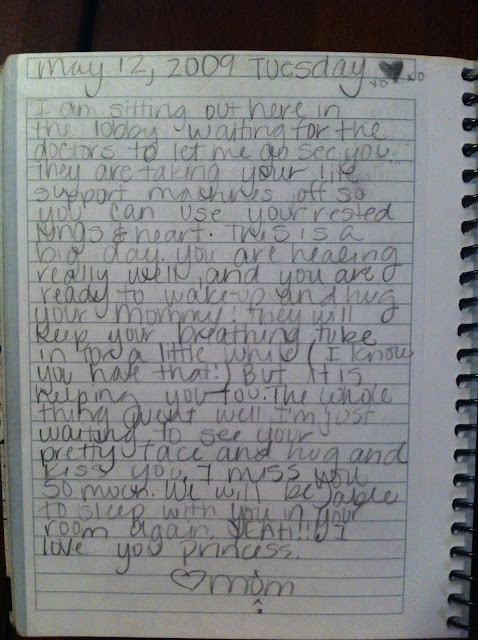 may 12, 2009 Tuesday ♥
XO XO
I am sitting out here in
the lobby waiting for the
doctors to let me go see you.
They are taking your life
support machines off so
you can use your rested
lungs & heart. This is a
big day. you are healing
really well, and you are
ready to wake-up and hug
your mommy! they will
keep your breathing tube
in for a little while (I know
you hate that!) But it is
helping you too. The whole
thing went well I'm just
waiting to see your
pretty face and hug and
kiss you. I miss you
so much. We will be able
to sleep with you in your
room again. YEAH!!! I
love you princess.
♡ mom